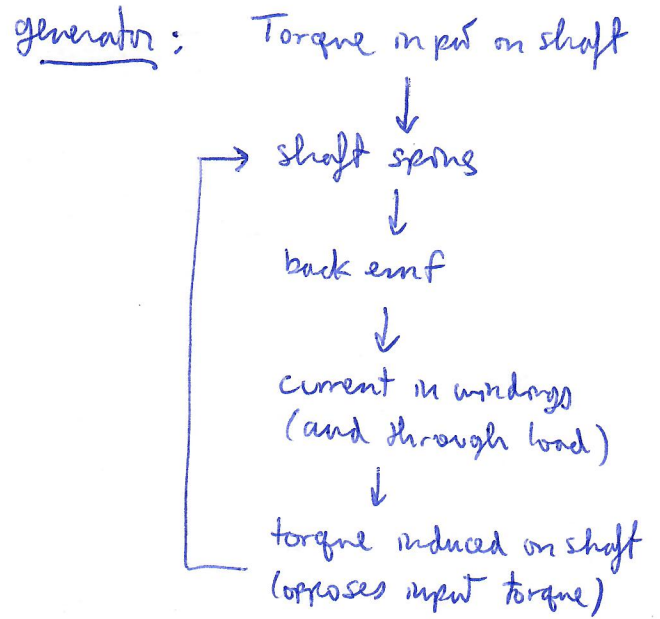 generator: Torque input on shaft
shaft spins
back emf
current in windings
(and through load)
torque induced on shaft
(opposes input torque)